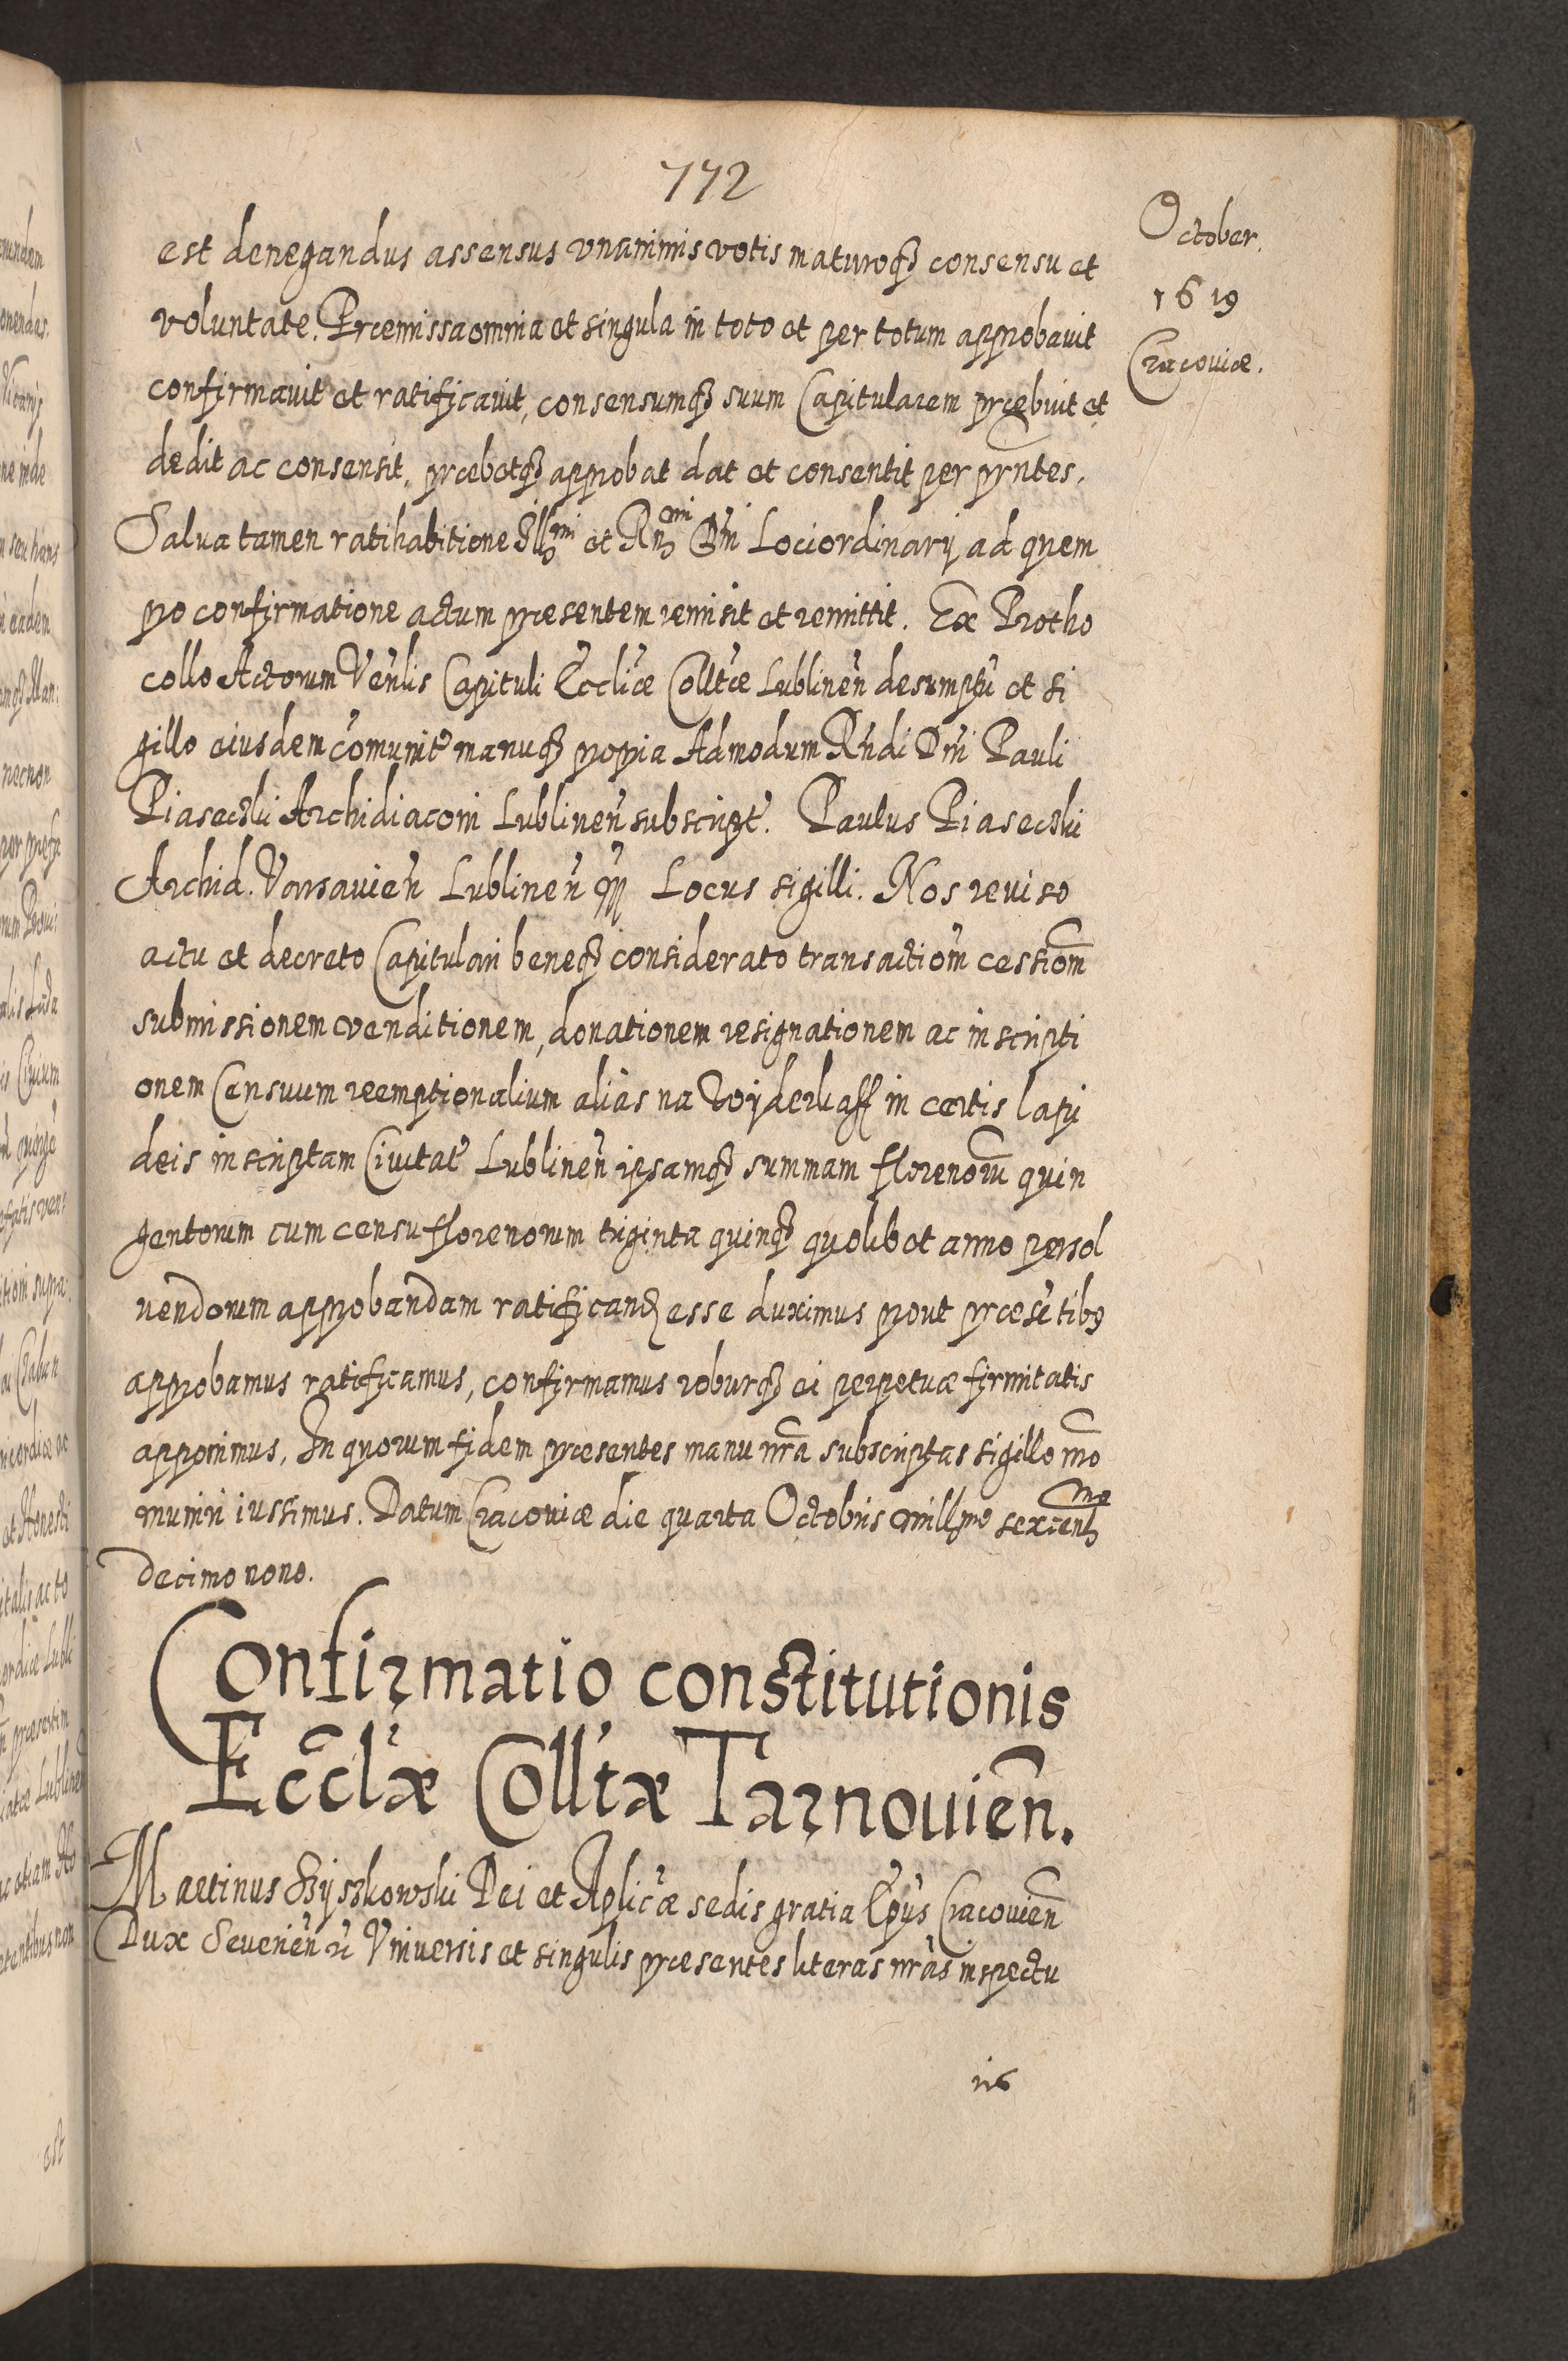 772
October.
1619
Cracouiæ.
est denegandus assensus vnanimis votis maturoq3 consensu et
voluntate. Præmissa omnia et singula in toto et per totum approbauit
confirmauit et ratificauit, consensumq3 suum Capitularem præbuit et
dedit ac consensit, præbetq3 approbat dat et consentit per pñtes.
Salua tamen ratihabitione Illmi et Rndmi Dni Loci ordinarij ad quem
pro confirmatione actum præsentem remisit et remittit. Ex Protho
collo Actorum Venlis Capituli Eccliæ Colltæ Lublinen desumptu et si
gillo eiusdem comunit manuq3 propria Admodum Rndi Dni Pauli
Piaseczki Archidiaconi Lublinen subscript. Paulus Piaseczki
Archid. Varsauien Lublinen Locus sigilli. Nos reuiso
actu et decreto Capitulari beneq3 considerato transactiom cessiom
submissionem venditionem, donationem resignationem ac inscripti
onem Censuum reemptionalium alias na Wyderkaff in certis lapi
deis inscriptam Ciuitat Lublinen ipsamq3 summam florenoru quin
gentorum cum censu florenorum triginta quinq3 quolibet anno persol
uendorum approbandam ratificand esse duximus prout præsetibg
approbamus ratificamus, confirmamus roburq3 ei perpetuæ firmitatis
apponimus, In quorum fidem præsentes manu nra subscriptas sigillo nro
muniri iussimus. Datum Cracouiæ die quarta Octobris millmo sexcentmo
decimo nono.
Confirmatio constitutionis
Eccl'æ Coll'tæ Tarnouien.
Martinus Szyszkowski Dei et Aplicæ sedis gratia Epus Cracouien
Dux Seuerien Vniuersis et singulis præsentes literas nras inspectu
ris